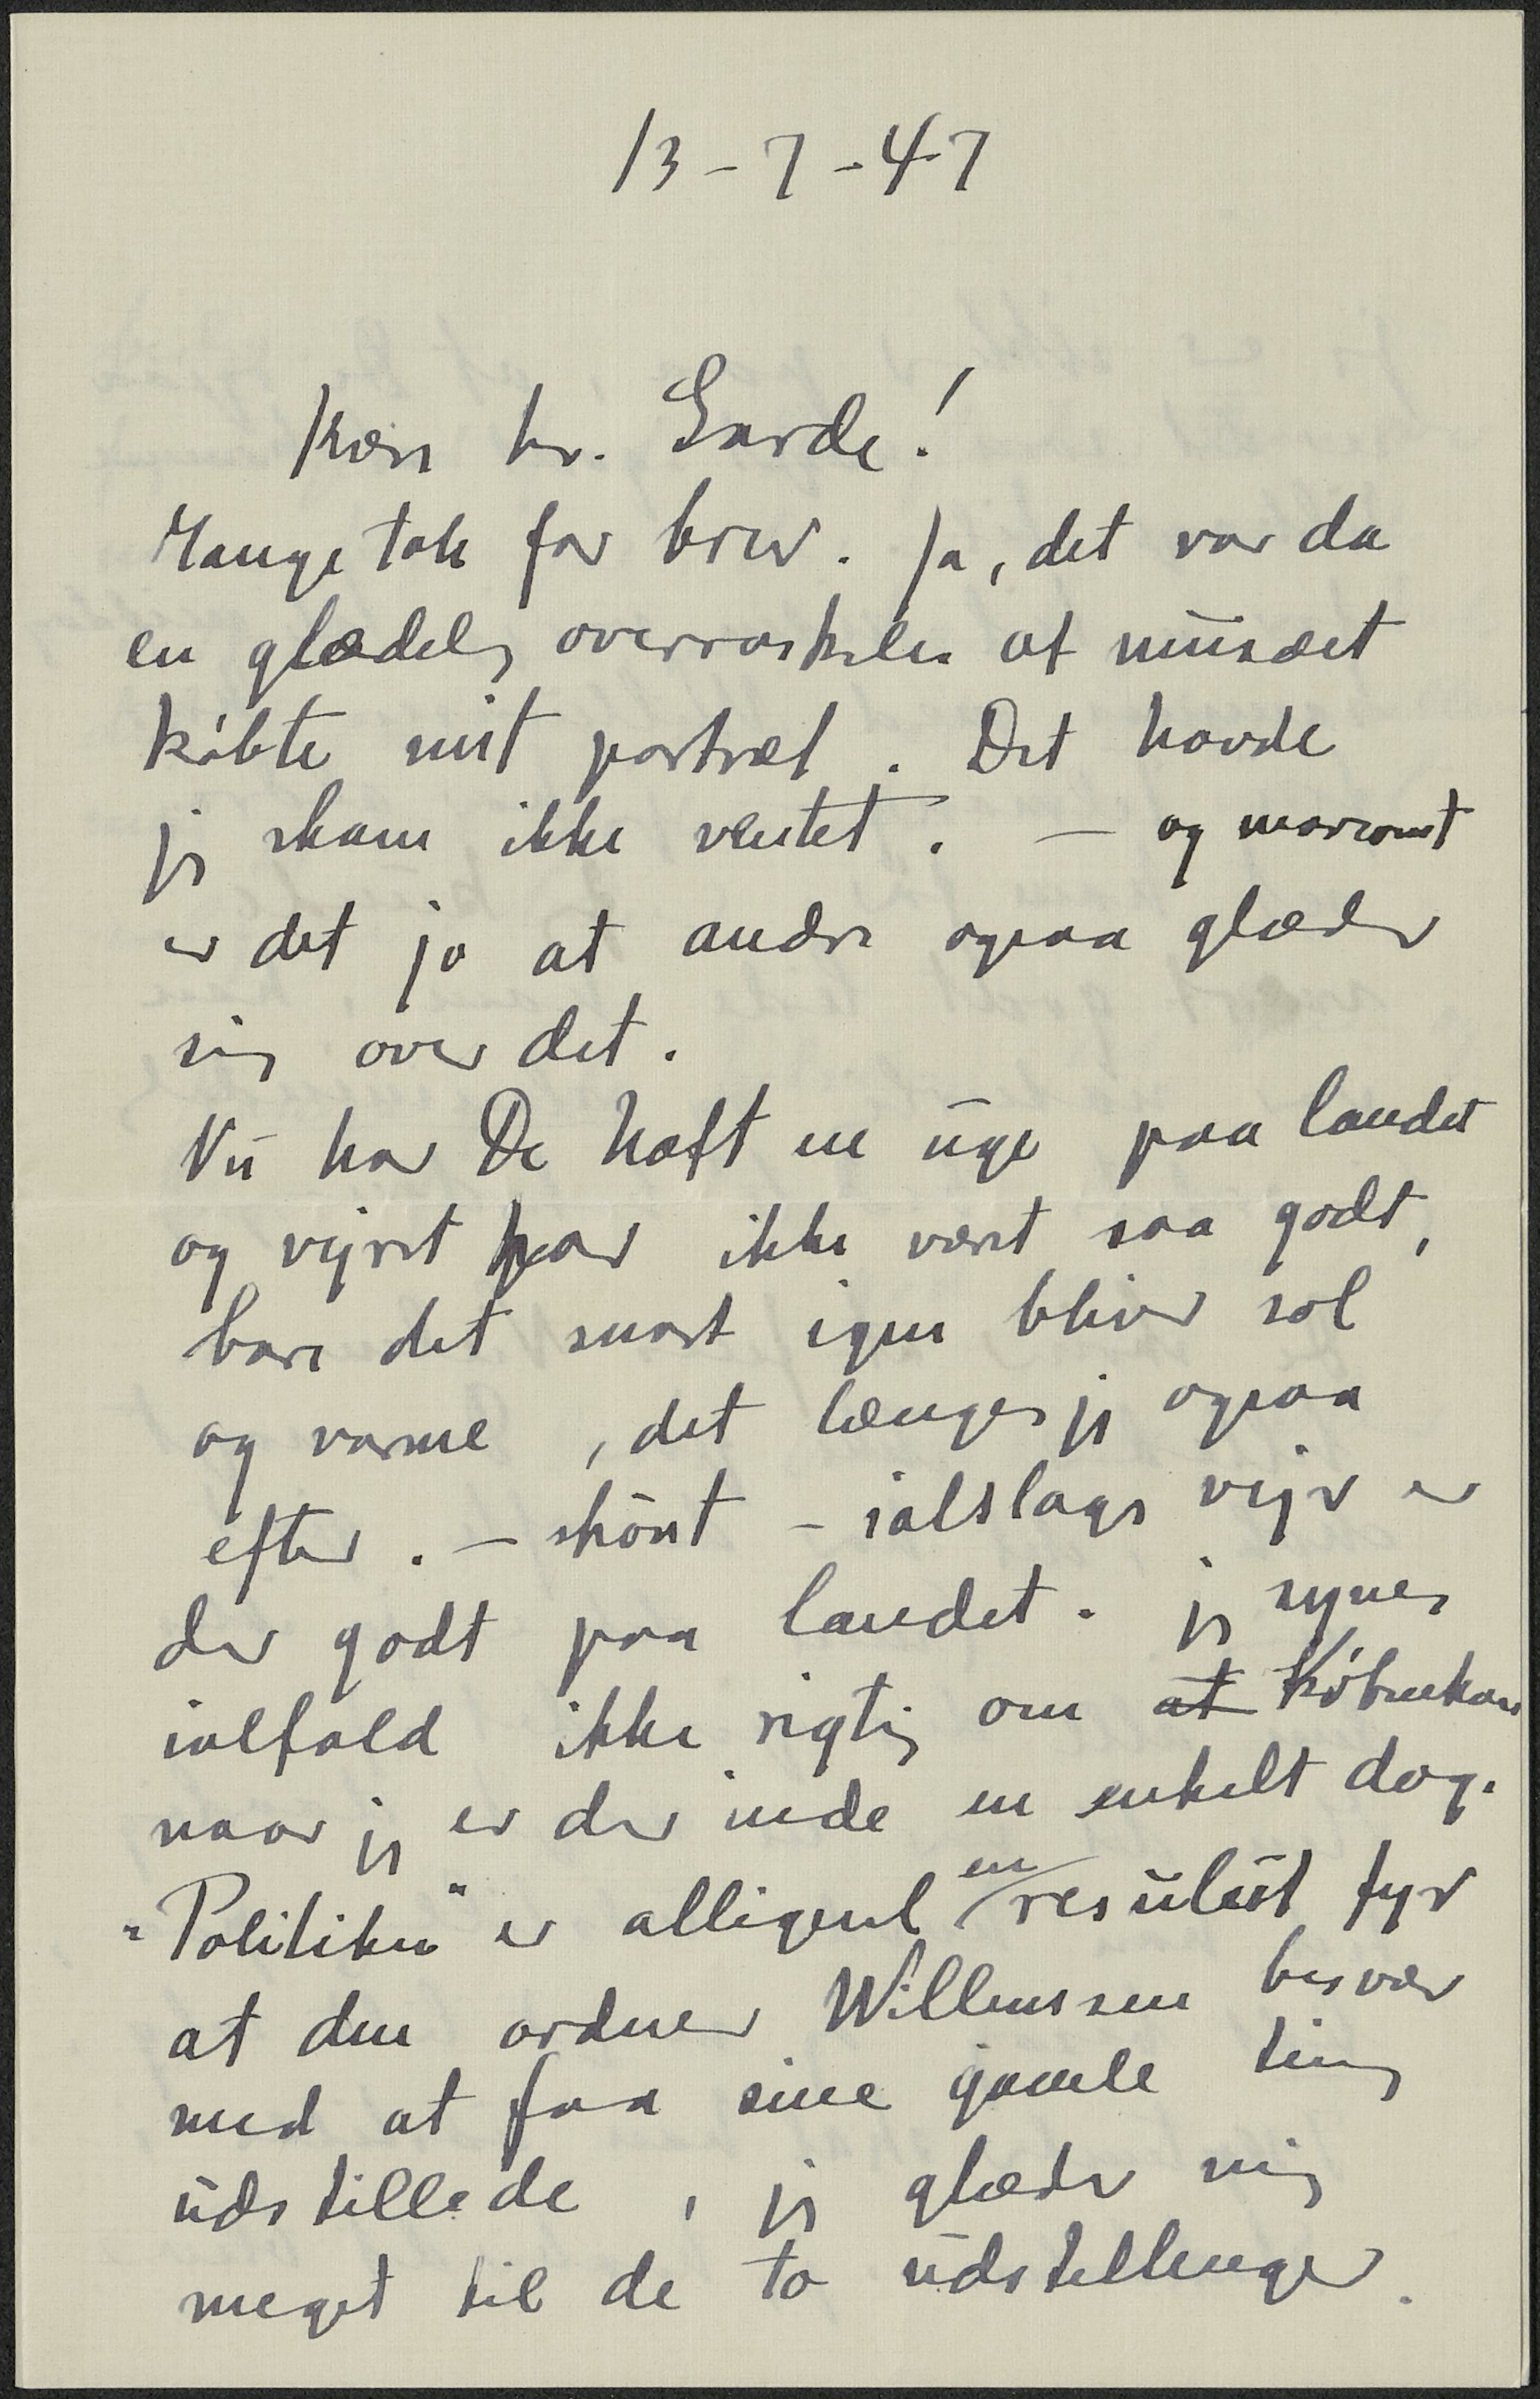 13-7-47
Kære hr. Garde!
Mange tak for brev. Ja, det var da
en glædelig overraskelse at museet
købte mit portræt. Det havde
jeg skam ikke ventet. — og morsomt
er det jo at andre ogsaa glæder
sig over det.
Nu har De haft en uge paa landet
og vejret har ikke været saa godt,
bare det snart igen bliver sol
og varme, det længes jeg ogsaa
efter. — skönt - ialslags vejr er
der godt paa landet. jeg synes
ialfald ikke rigtig om at København
naar jeg er der inde en enkelt dag.
"Politiken" er alligevel en resulut fyr
at den ordner Willumsen besvær
med at faa sine gamle ting
udstillede, jeg glæder mig
meget til de to udstillinger.